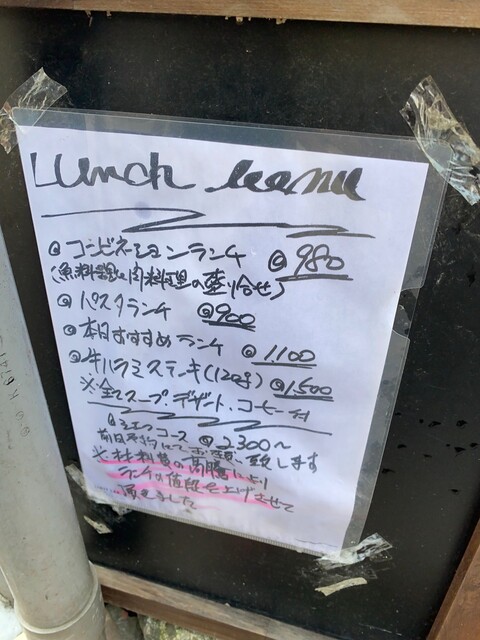 Lunch menu
◎コンビネーションランチ @980
(魚料理と肉料理の盛り合せ)
◎パスタランチ @900
◎本日おすすめランチ @1100
◎牛ハラミステーキ(120g) @1,500
※全てスープ、デザート、コーヒー付
コース @2300〜
前日予約にてお願い致します
※材料費の高騰により
ランチの値段を上げさせて
頂きました